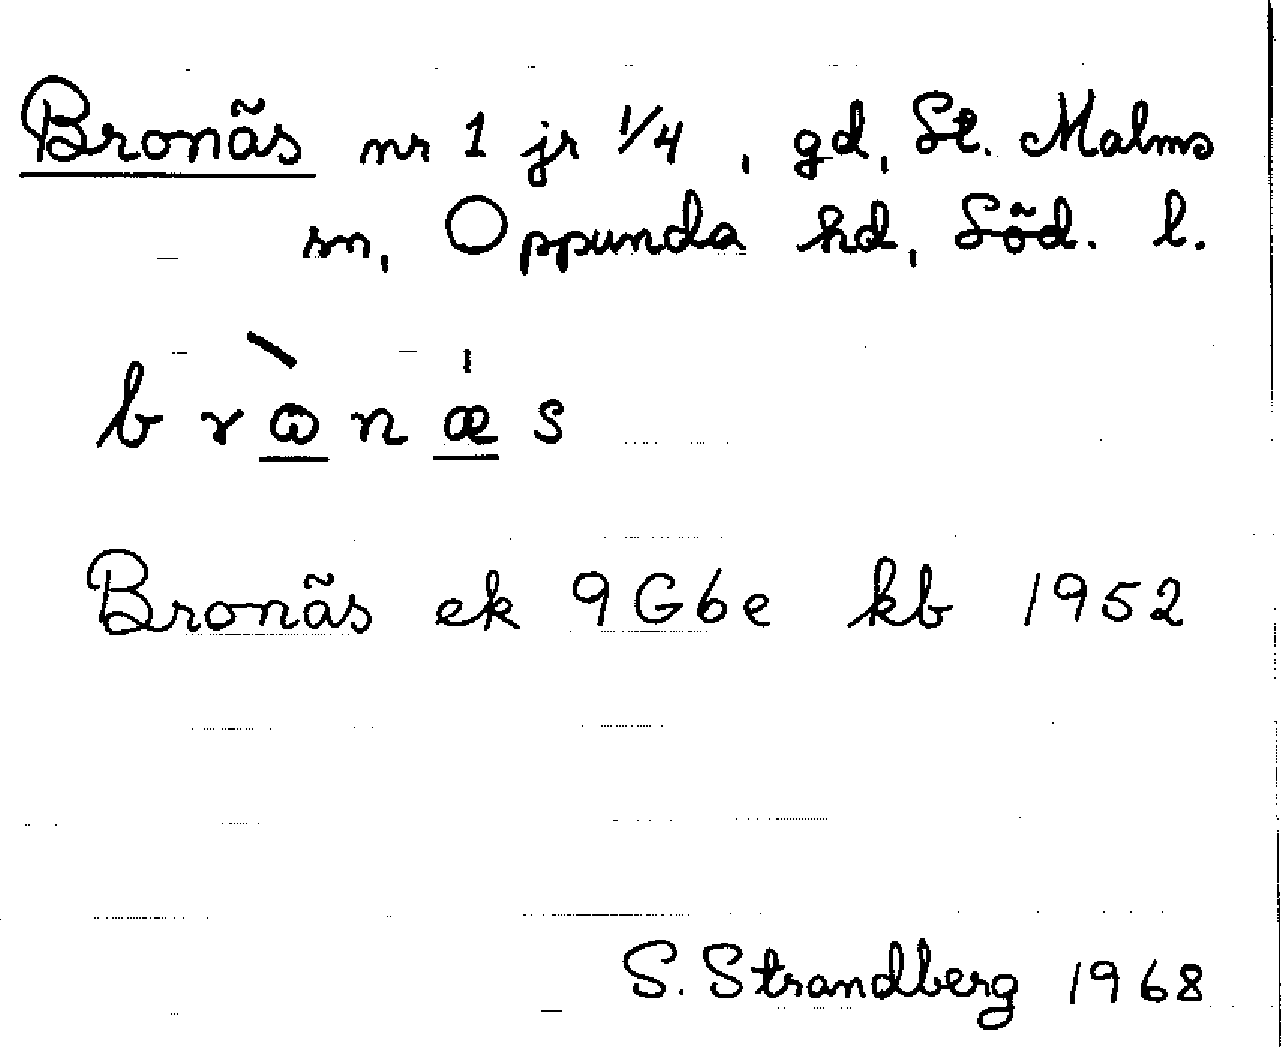 Bronäs nr 1 jr 1/4, gd, St. Malms
sn, Oppunda hd, Söd. l.
brɷ̀næs
Bronäs ek 9G6e kb 1952
S. Strandberg 1968